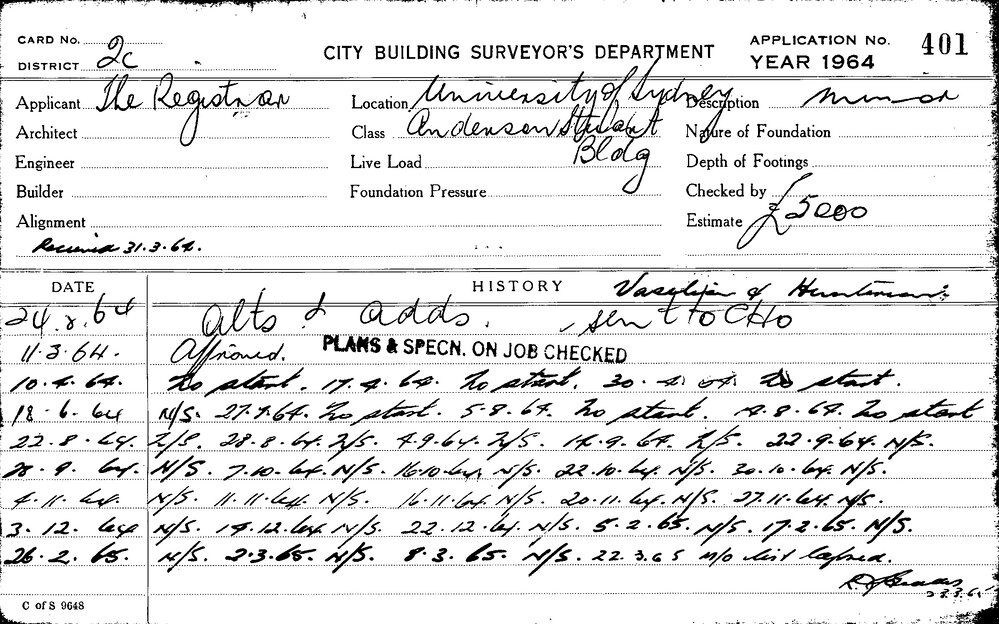 CARD No. 2c
DISTRICT
CITY BUILDING SURVEYOR'S DEPARTMENT
APPLICATION No. 401
YEAR 1964
Applicant The Registrar
Location University of Sydney
Description minor
Architect
Class Anderson Stuart
Nature of Foundation
Engineer
Live Load Bldg
Depth of Footings
Builder
Foundation Pressure
Checked by
Alignment
Estimate £5000
Received 31.3.64.
DATE
HISTORY
24.2.64 Alts & Adds. sent to CHO
11.3.64. Approved. PLANS & SPECN. ON JOB CHECKED
10.4.64. No start. 17.4.64. No start. 30.4.64 No start.
18.6.64 N/S. 27.7.64. No start. 5.8.64. No start. 4.8.64. No start
22.8.64. N/S. 28.8.64. N/S. 4.9.64. N/S. 14.9.64. N/S. 22.9.64. N/S.
28.9.64. N/S. 7.10.64. N/S. 16.10.64. N/S. 22.10.64. N/S. 30.10.64. N/S.
4.11.64. N/S. 11.11.64. N/S. 16.11.64. N/S. 20.11.64. N/S. 27.11.64. N/S.
3.12.64 N/S. 14.12.64 N/S. 22.12.64. N/S. 5.2.65. N/S. 17.2.65. N/S.
26.2.65. N/S. 2.3.65. N/S. 8.3.65. N/S. 22.3.65 lapsed.
C of S 9648